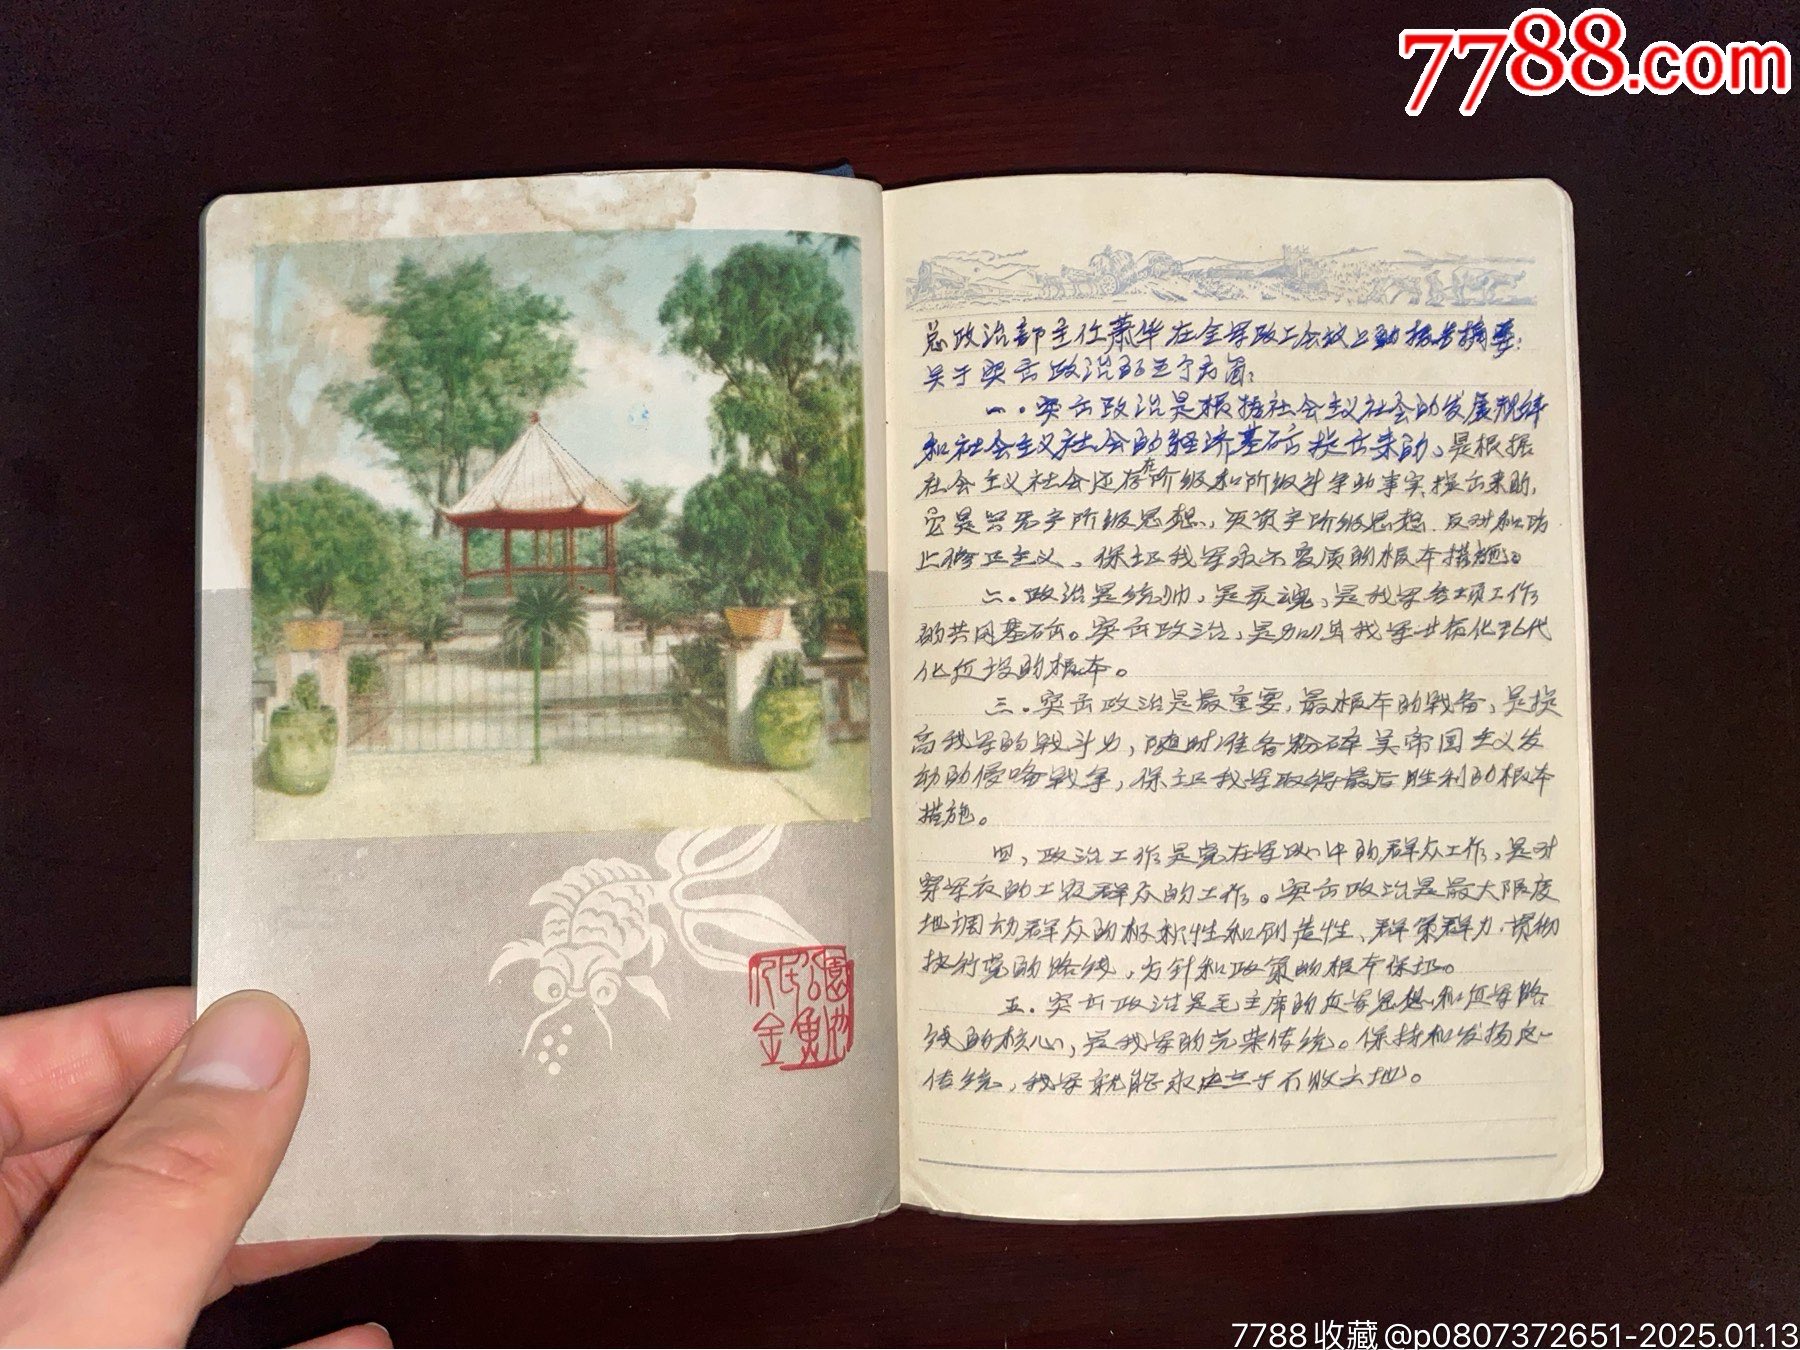 7788.com
总政治部主任萧华在全军政工会议上的报告摘要:
关于突出政治的五个方面:
一.突出政治是根据社会主义社会的发展规律
和社会主义社会的经济基础提出来的、是根据
社会主义社会还存在阶级和阶级斗争的事实提出来的,
它是兴无产阶级思想、灭资产阶级思想.反对和防
止修正主义、保证我军永不变质的根本措施。
二.政治是统帅,是灵魂,是我军各项工作
的共同基础。突出政治,是加强我军革命化现代
化建设的根本。
三.突出政治是最重要,最根本的战备,是提
高我军的战斗力,随时准备粉碎美帝国主义发
动的侵略战争,保证我军取得最后胜利的根本
措施。
四,政治工作是党在军队中的群众工作,是对
穿军衣的工农群众的工作。突出政治是最大限度
地调动群众的极积性和创造性、群策群力,贯彻
执行党的路线,方针和政策的根本保证。
五.突出政治是毛主席的建军思想和建军路
线的核心,是我军的光荣传统。保持和发扬这一
传统,我军就能永远立于不败之地。
人民公園
金魚池
7788收藏@p0807372651-2025.01.13